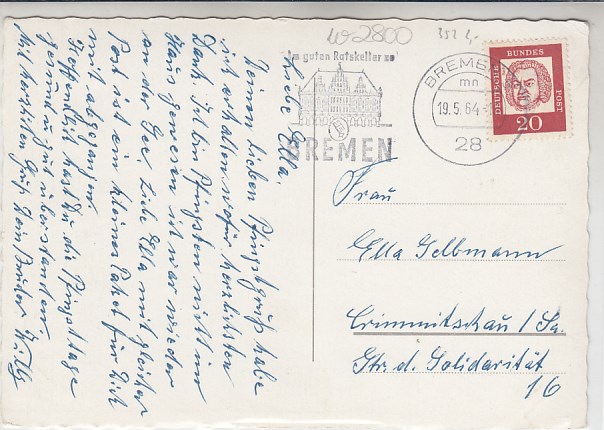 w2800
Im guten Ratskeller zu
BREMEN
BREMEN
mn
19.5.64
28
DEUTSCHE BUNDES POST
20
Liebe Ella.
Deinen lieben Pfingstgruß habe
ich erhalten wofür herzlichsten
Dank. Ich bin Pfingsten nicht im
Haus gewesen ich war wieder
an der See. Liebe Ella mit gleicher
Post ist ein kleines Paket für Dich
mit abgegangen
Hoffentlich hast du die Pfingsttage
gesund u. gut überstanden.
Mit herzlichen Gruß Dein Bruder Willy
Frau
Ella Gelbmann
Crimmitschau / Sa.
Str. d. Solidarität
16